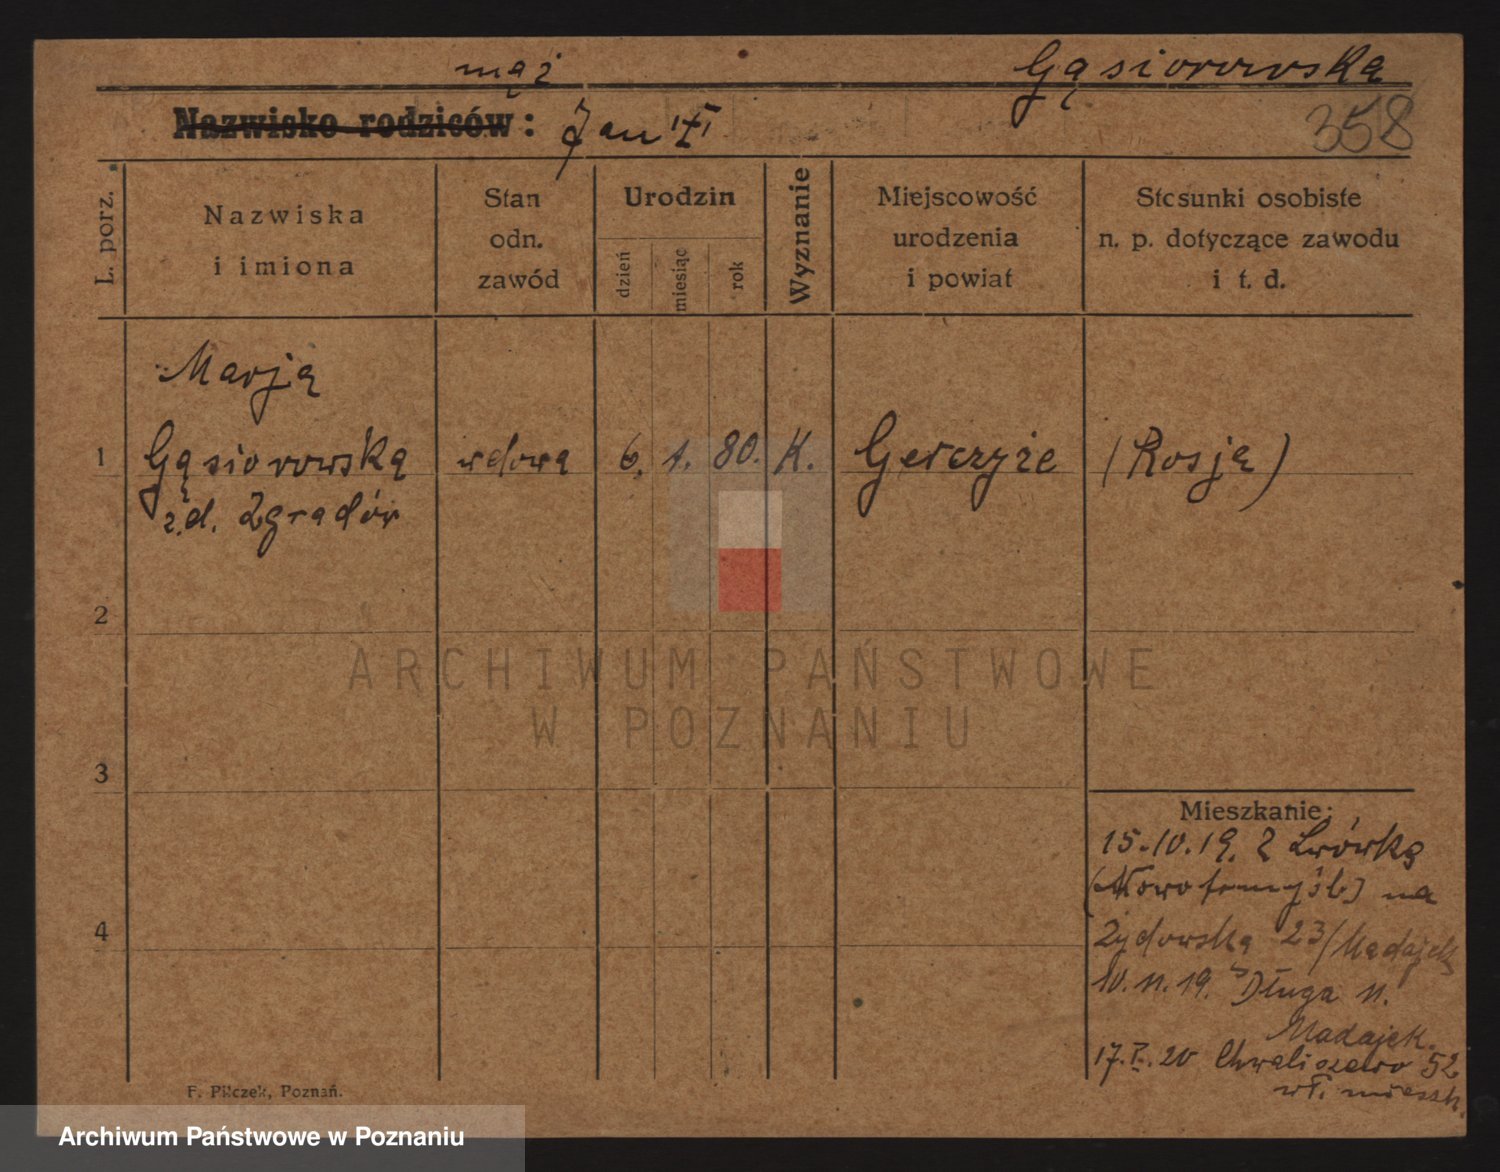 mąż Gąsiorowska
Nazwisko rodziców: Jan 358
L. porz.
Nazwiska
i imiona
Stan
odn.
zawód
Urodzin
dzień
miesiąc
rok
Wyznanie
Miejscowość
urodzenia
i powiat
Stosunki osobiste
n. p. dotyczące zawodu
i t. d.
Marja
1 Gąsiorowska wdowa 6. 1. 80. K. (Rosja)
zd.
2
ARCHIWUM PAŃSTWOWE
W POZNANIU
3
4
Mieszkanie:
15.10.19. z Lwówka
(Nowotomyśl) na
Żydowska 23/Madajek
10.11.19. Długa 11.
Madajek.
17.I.20 Chwaliszewo 52
wł. mieszk.
F. Pilczek, Poznań.
Archiwum Państwowe w Poznaniu